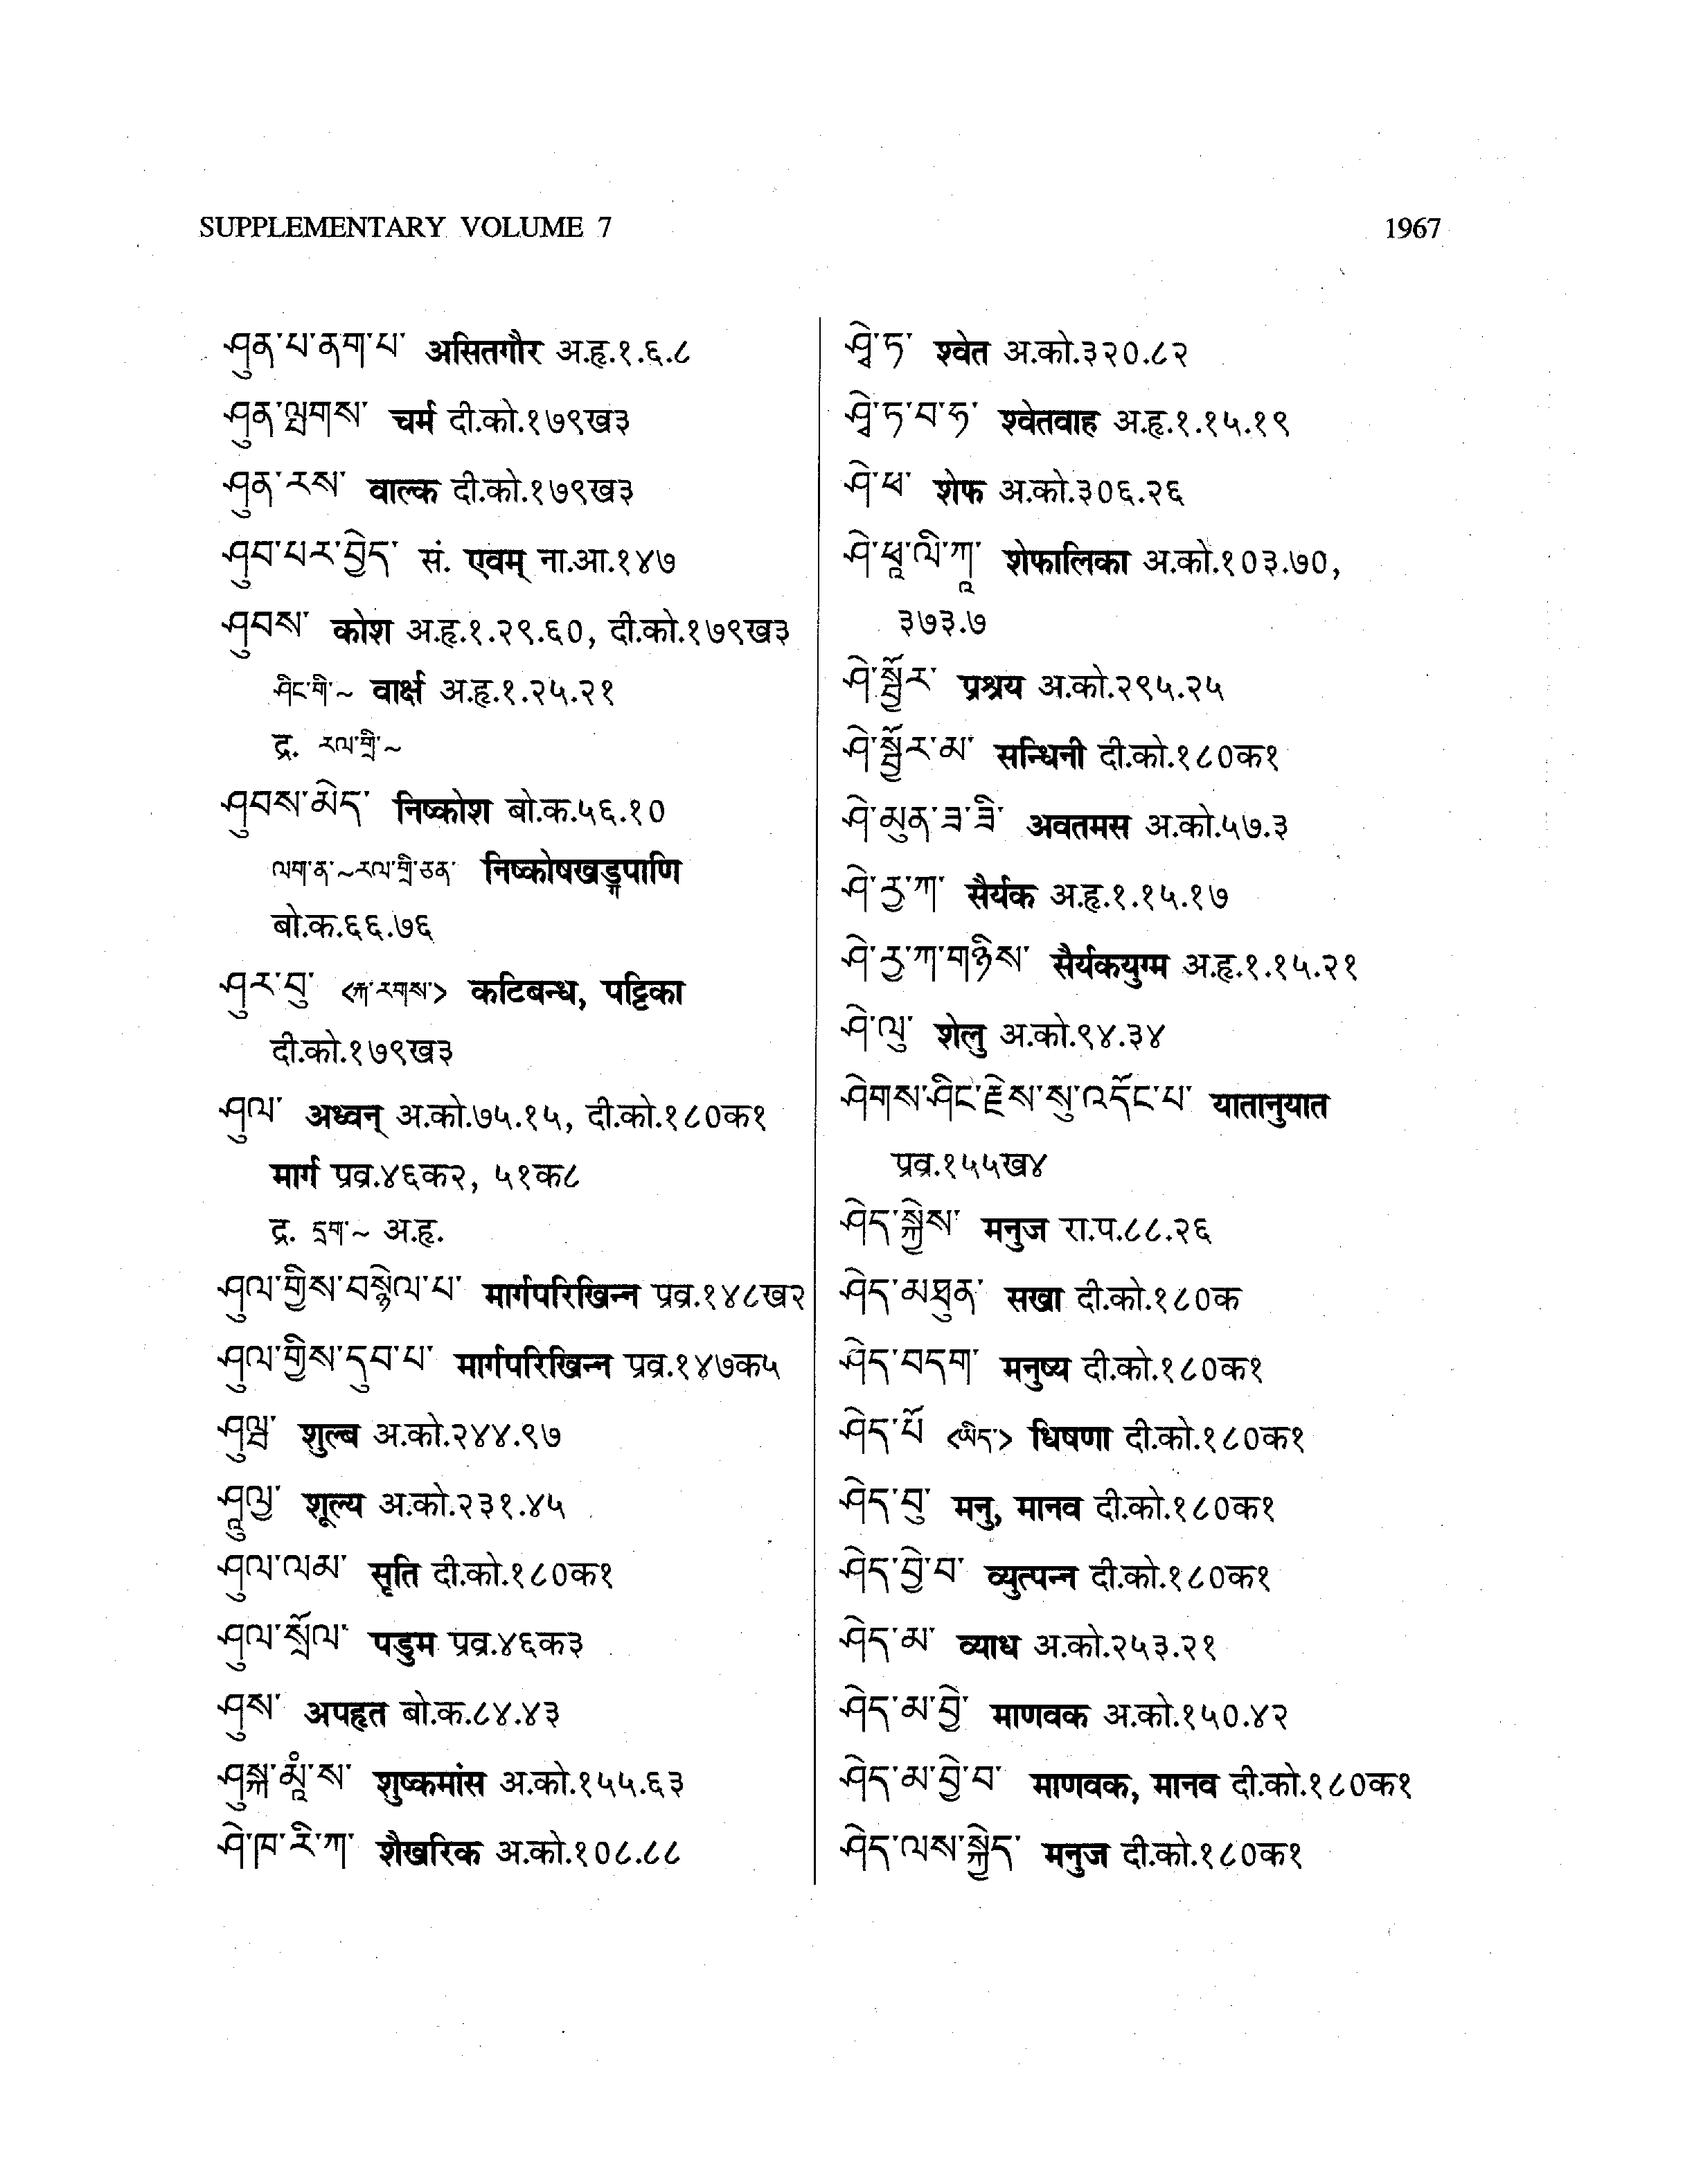 SUPPLEMENTARY VOLUME 7 1967
ཤུན་པ་ནག་པ་ असितगौर अ.हृ.१.६.८
ཤུན་ལྤགས་ चर्म दी.को.१७९ख३
ཤུན་རས་ वाल्क दी.को.१७९ख३
ཤུབ་པར་བྱེད་ सं. एवम् ना.आ.१४७
ཤུབས་ कोश अ.हृ.१.२९.६०, दी.को.१७९ख३
ཤིང་གི་~ वार्क्ष अ.हृ.१.२५.२१
द्र. རལ་གྲི་~
ཤུབས་མེད་ निष्कोश बो.क.५६.१०
ལག་ན་~རལ་གྲི་ཅན་ निष्कोषखड्गपाणि
बो.क.६६.७६
ཤུར་བུ་ <ཀ་རགས་> कटिबन्ध, पट्टिका
दी.को.१७९ख३
ཤུལ་ अध्वन् अ.को.७५.१५, दी.को.१८०क१
मार्ग प्रव्र.४६क२, ५१क८
द्र. དྲག་~ अ.हृ.
ཤུལ་གྱིས་བསྙེལ་པ་ मार्गपरिखिन्न प्रव्र.१४८ख२
ཤུལ་གྱིས་དུབ་པ་ मार्गपरिखिन्न प्रव्र.१४७क५
ཤུལྦ་ शुल्ब अ.को.२४४.९७
ཤཱུལྱ་ शूल्य अ.को.२३१.४५
ཤུལ་ལམ་ सृति दी.को.१८०क१
ཤུལ་སྲོལ་ पडुम प्रव्र.४६क३
ཤུས་ अपहृत बो.क.८४.४३
ཤུསྐ་མཱཾ་ས་ शुष्कमांस अ.को.१५५.६३
ཤེ་ཁ་རི་ཀ་ शैखरिक अ.को.१०८.८८
ཤྭེ་ཏ་ श्वेत अ.को.३२०.८२
ཤྭེ་ཏ་བ་ཧ་ श्वेतवाह अ.हृ.१.१५.१९
ཤེ་ཕ་ शेफ अ.को.३०६.२६
ཤེ་ཕཱ་ལི་ཀཱ་ शेफालिका अ.को.१०३.७०,
३७३.७
ཤེ་སྦྱོར་ प्रश्रय अ.को.२९५.२५
ཤེ་སྦྱོར་མ་ सन्धिनी दी.को.१८०क१
ཤེ་མུན་ཟ་ཟི་ अवतमस अ.को.५७.३
ཤེ་རྱ་ཀ་ सैर्यक अ.हृ.१.१५.१७
ཤེ་རྱ་ཀ་གཉིས་ सैर्यकयुग्म अ.हृ.१.१५.२१
ཤེ་ལུ་ शेलु अ.को.९४.३४
ཤེགས་ཤིང་རྗེས་སུ་འདོང་པ་ यातानुयात
प्रव्र.१५५ख४
ཤེད་སྐྱེས་ मनुज रा.प.८८.२६
ཤེད་མཐུན་ सखा दी.को.१८०क
ཤེད་བདག་ मनुष्य दी.को.१८०क१
ཤེད་པོ་ <ཡིད་> धिषणा दी.को.१८०क१
ཤེད་བུ་ मनु, मानव दी.को.१८०क१
ཤེད་བྱེ་བ་ व्युत्पन्न दी.को.१८०क१
ཤེད་མ་ व्याध अ.को.२५३.२१
ཤེད་མ་བྱེ་ माणवक अ.को.१५०.४२
ཤེད་མ་བྱེ་བ་ माणवक, मानव दी.को.१८०क१
ཤེད་ལས་སྐྱེད་ मनुज दी.को.१८०क१